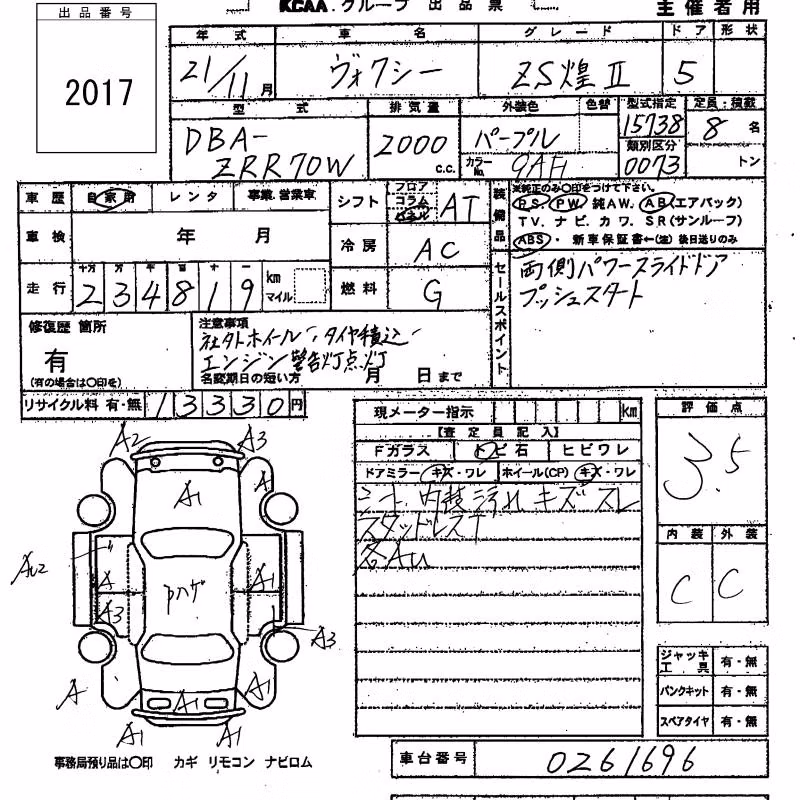 KCAA.グループ 出品票 主催者用
出品番号
2017
年式 車名 グレード ドア 形状
21/11月 ヴォクシー ZS煌Ⅱ 5
型式 排気量 外装色 色替 型式指定 定員・積載
DBA-ZRR70W 2000c.c. パープル 15738 8名
カラーNo. 9AH 類別区分 0073 トン
車歴 自家用 レンタ 事業.営業車
シフト フロア コラム パネル AT
装備品
※純正のみ〇印をつけて下さい。
P.S. PW 純AW. AB(エアバック)
TV. ナビ. カワ. SR(サンルーフ)
ABS・新車保証書←(注)後日送りのみ
車検 年 月
冷房 AC
走行 十万 万 千 百 十 一
234819 km マイル
燃料 G
セールスポイント
両側パワースライドドア
プッシュスタート
修復歴 箇所
有
(有の場合は〇印を)
注意事項
社外ホイール、タイヤ積込
エンジン警告灯点灯
名変期日の短い方 月 日まで
リサイクル料 有・無 13330円
現メーター指示 km
【査定員記入】
Fガラス トビ石 ヒビワレ
ドアミラー(キズ・ワレ ホイール(CP) キズ・ワレ
シート、内装汚れ キズ スレ
スタッドレスT
各AU
評価点
3.5
内装 外装
C C
A2 A3
A1 A
AU2
A A1
A3 Pハゲ
A3
A A1 A1
A1 A1
ジャッキ工具 有・無
パンクキット 有・無
スペアタイヤ 有・無
事務局預り品は〇印 カギ リモコン ナビロム
車台番号 0261696